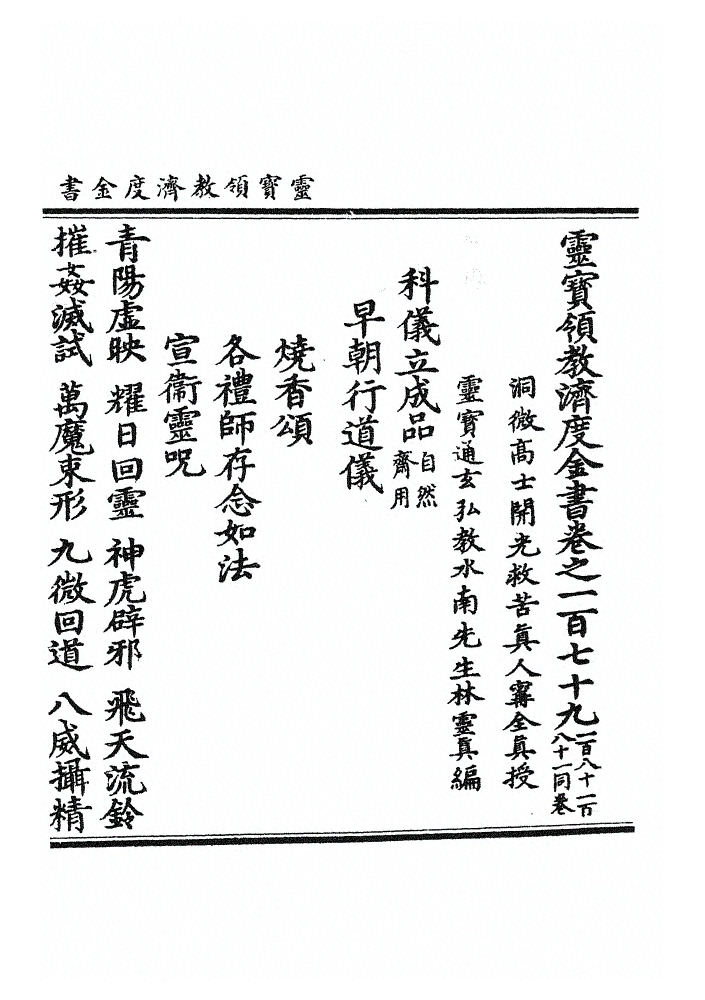 靈寶領教濟度金書
靈寶領教濟度金書卷之一百七十九一百八十一百八十一同卷
洞微高士開光救苦眞人寗全眞授
靈寶通玄弘教水南先生林靈眞編
科儀立成品自然齋用
早朝行道儀
燒香頌
各禮師存念如法
宣衞靈呪
青陽虛映 耀日回靈 神虎辟邪 飛天流鈴
摧姦滅試 萬魔束形 九微回道 八威攝精